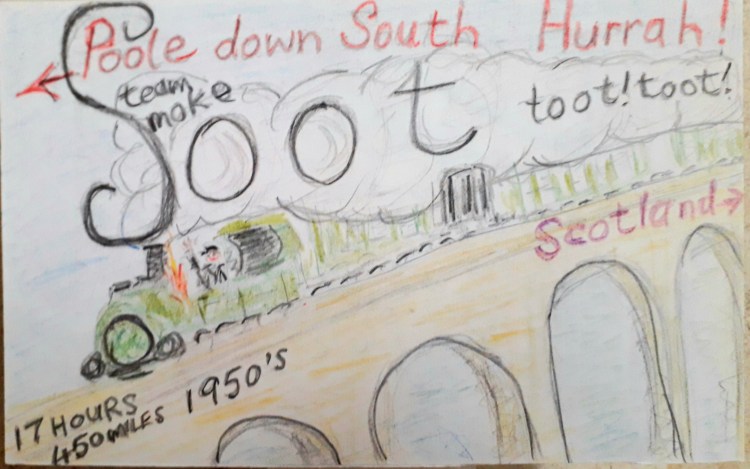 Poole down South Hurrah!
team
moke
Soot
toot! toot!
Scotland
1950's
17 HOURS
450 MILES